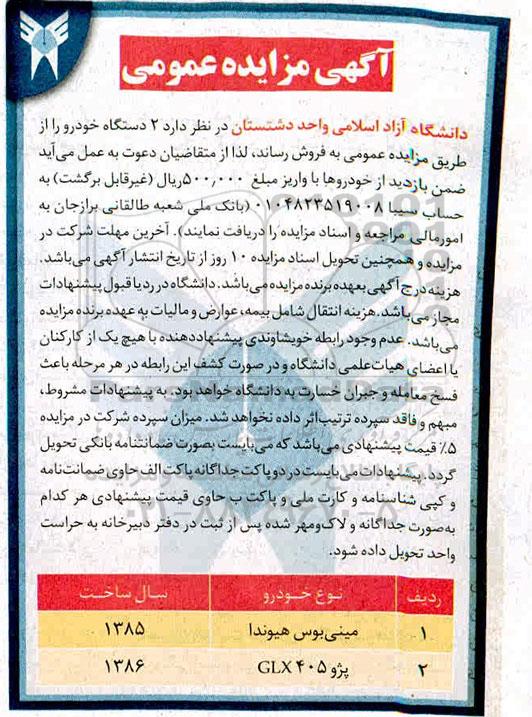 آگهی مزایده عمومی
دانشگاه آزاد اسلامی واحد دشتستان در نظر دارد ۲ دستگاه خودرو را از
طریق مزایده عمومی به فروش رساند، لذا از متقاضیان دعوت به عمل می‌آید
ضمن بازدید از خودروها با واریز مبلغ ۵۰۰,۰۰۰ریال (غیرقابل برگشت) به
حساب سیبا ۰۱۰۴۸۲۳۵۱۹۰۰۸ (بانک ملی شعبه طالقانی برازجان به
امورمالی مراجعه و اسناد مزایده را دریافت نمایند). آخرین مهلت شرکت در
مزایده و همچنین تحویل اسناد مزایده ۱۰ روز از تاریخ انتشار آگهی می‌باشد.
هزینه درج آگهی بعهده برنده مزایده می‌باشد. دانشگاه در رد یا قبول پیشنهادات
مجاز می‌باشد. هزینه انتقال شامل بیمه، عوارض و مالیات به عهده برنده مزایده
می‌باشد. عدم وجود رابطه خویشاوندی پیشنهاددهنده با هیچ یک از کارکنان
یا اعضای هیات‌علمی دانشگاه و در صورت کشف این رابطه در هر مرحله باعث
فسخ معامله و جبران خسارت به دانشگاه خواهد بود. به پیشنهادات مشروط،
مبهم و فاقد سپرده ترتیب‌اثر داده نخواهد شد. میزان سپرده شرکت در مزایده
۵٪ قیمت پیشنهادی می‌باشد که می‌بایست بصورت ضمانتنامه بانکی تحویل
گردد. پیشنهادات می‌بایست در دو پاکت جداگانه پاکت الف حاوی ضمانت‌نامه
و کپی شناسنامه و کارت ملی و پاکت ب حاوی قیمت پیشنهادی هر کدام
به‌صورت جداگانه و لاک‌ومهر شده پس از ثبت در دفتر دبیرخانه به حراست
واحد تحویل داده شود.
ردیف نوع خودرو سال ساخت
۱ مینی‌بوس هیوندا ۱۳۸۵
۲ پژو ۴۰۵ GLX ۱۳۸۶